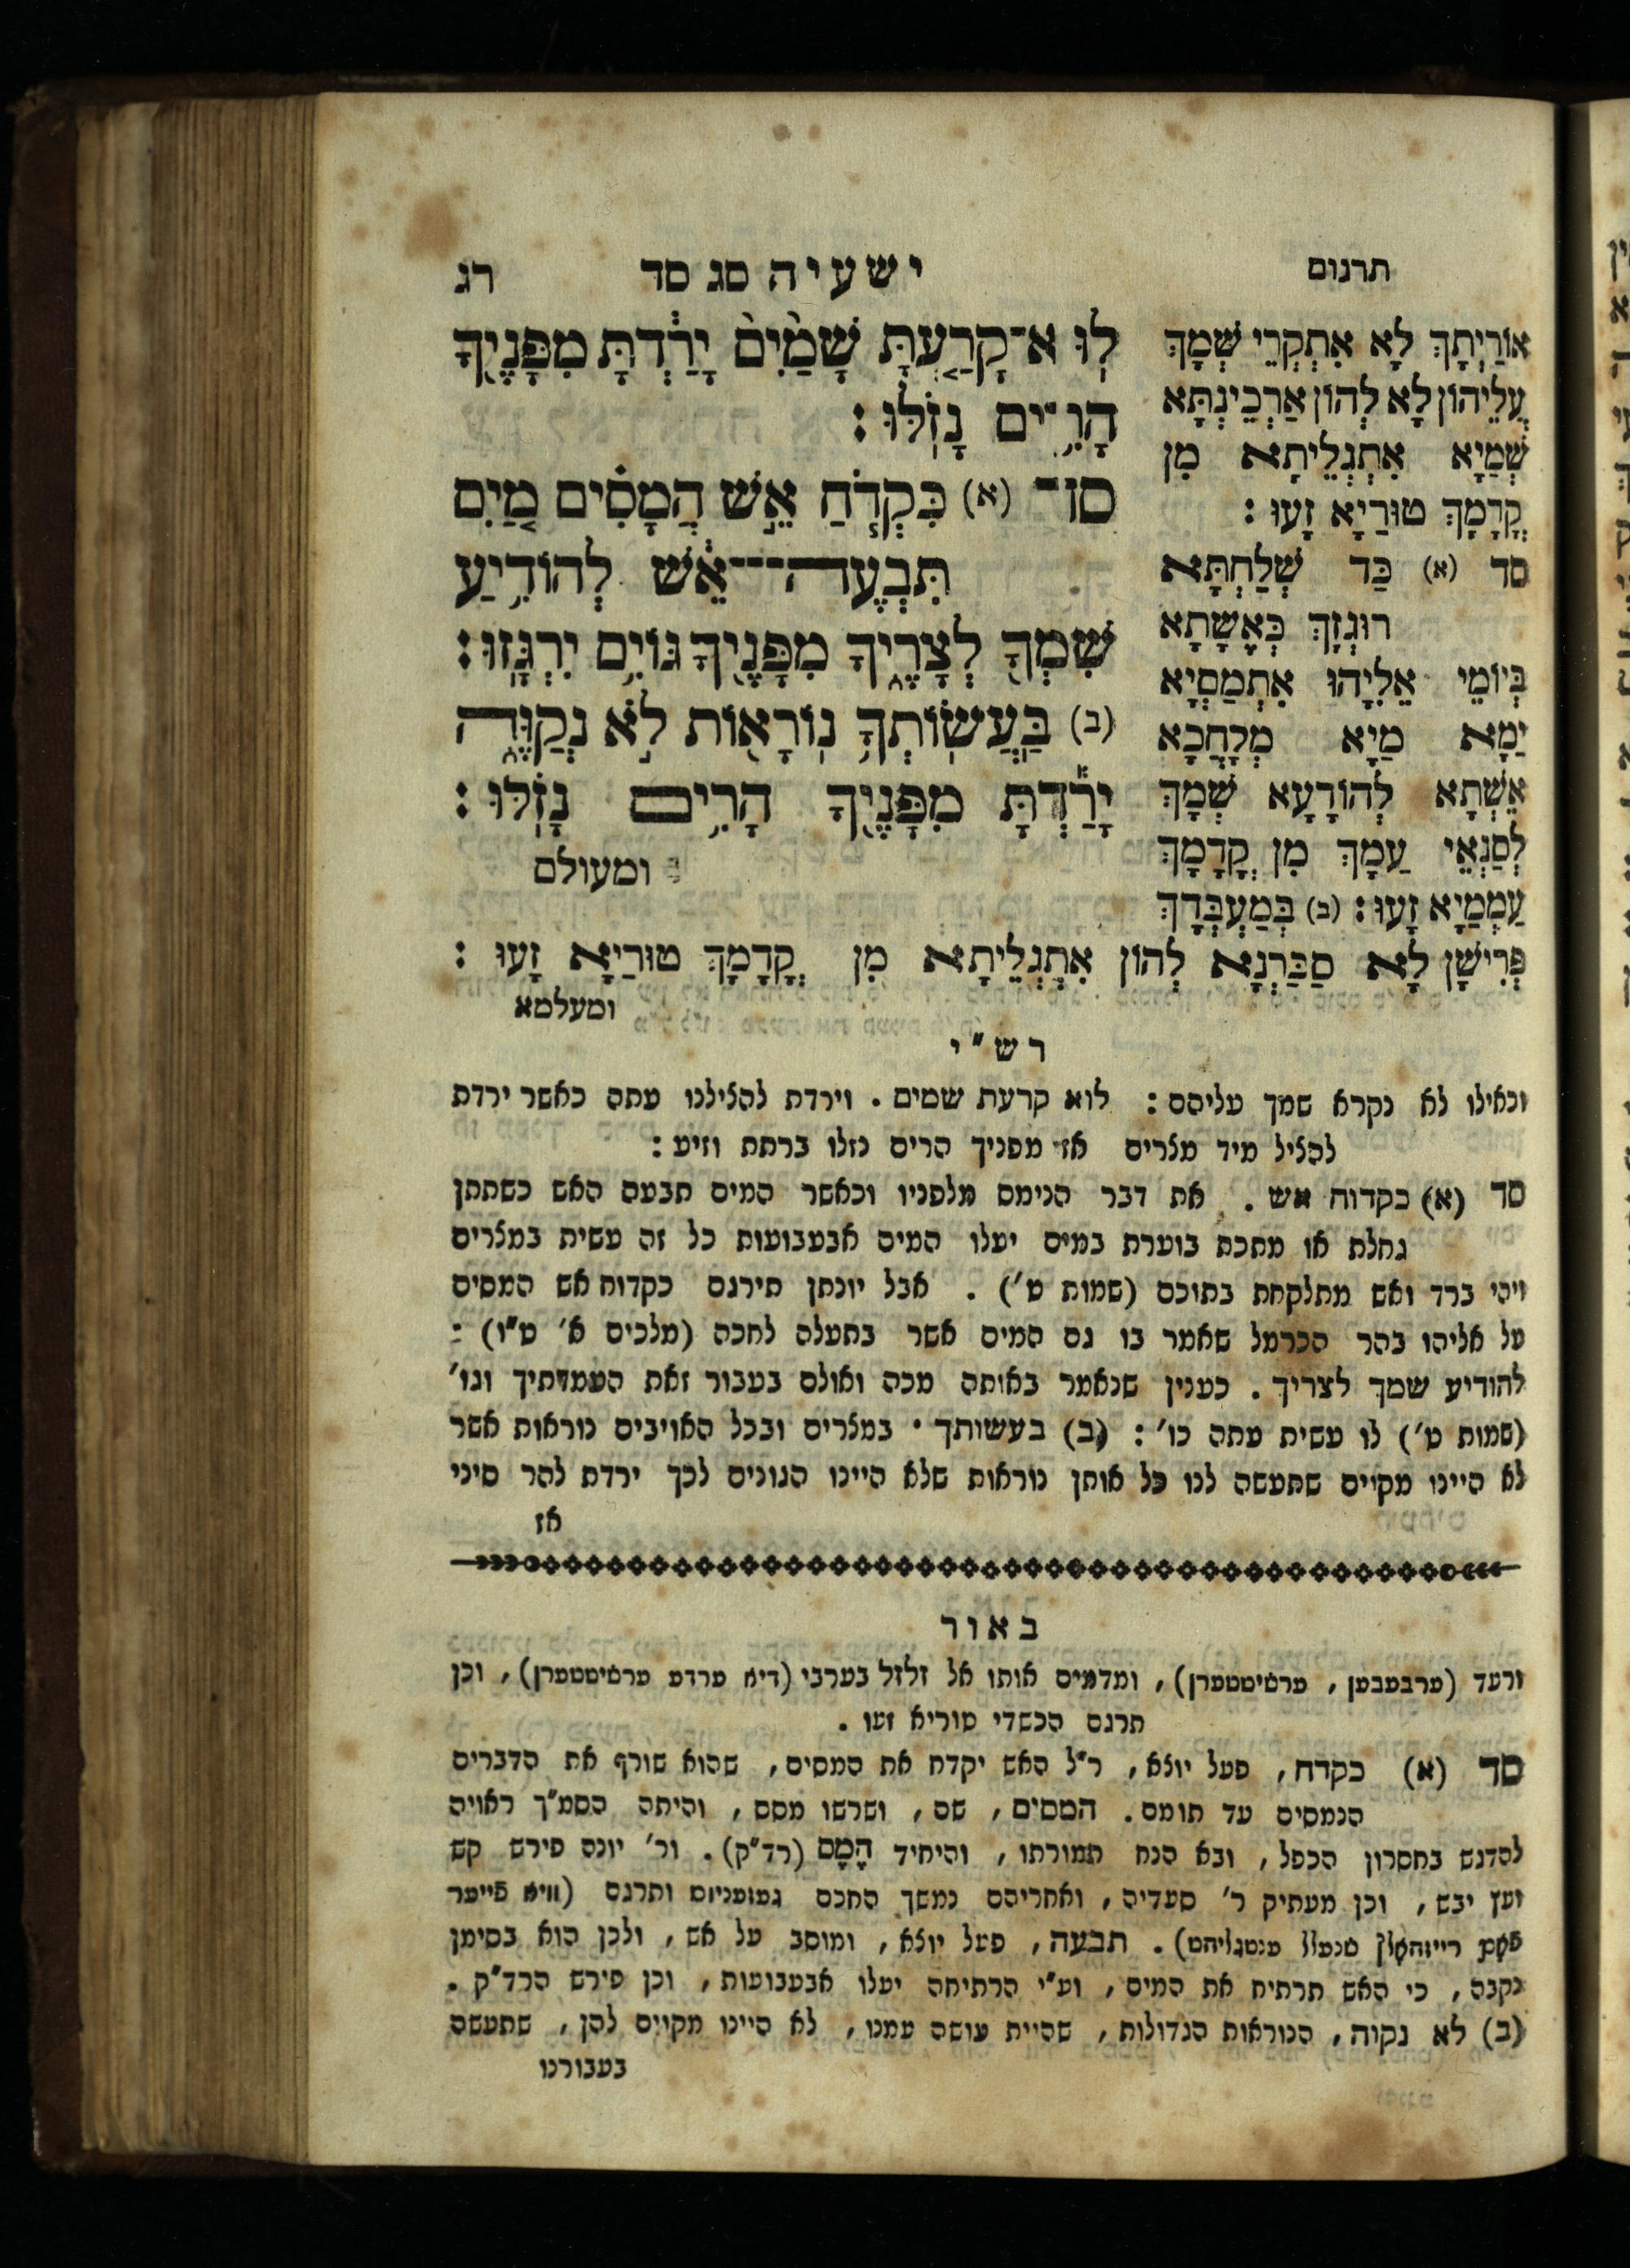 תרגום
ישעיה סג סד
רג
אוֹרַיְתָךְ לָא אִתְקְרֵי שְׁמָךְ
עֲלֵיהוֹן לָא לְהוֹן אַרְכֵינְתָּא
שְׁמַיָא אִתְגְלֵיתָא מִן
קֳדָמָךְ טוּרַיָא זָעוּ :
סד (א) כַּד שְׁלַחְתָּא
רוּגְזָךְ כְּאֶשָׁתָא
בְּיוֹמֵי אֵלִיָהוּ אִתְמְסְיָא
יַמָא מַיָא מְלַחֲכָא
אֶשָׁתָא לְהוֹדָעָא שְׁמָךְ
לְסַנְאֵי עַמָךְ מִן קֳדָמָךְ
עַמְמַיָא זָעוּ : (ב) בְּמֶעְבְּדָךְ
לֽוּא־קָרַ֤עְתָּ שָׁמַ֙יִם֙ יָרַ֔דְתָּ מִפָּנֶ֖יךָ
הָרִ֥ים נָזֹֽלּוּ :
סד (א) כִּקְדֹ֧חַ אֵ֣שׁ הֲמָסִ֗ים מַ֚יִם
תִּבְעֶה־אֵ֔שׁ לְהוֹדִ֥יעַ
שִׁמְךָ֖ לְצָרֶ֑יךָ מִפָּנֶ֖יךָ גּוֹיִ֥ם יִרְגָּֽזוּ :
(ב) בַּעֲשֽׂוֹתְךָ֥ נֽוֹרָא֖וֹת לֹ֣א נְקַוֶּ֑ה
יָרַ֕דְתָּ מִפָּנֶ֖יךָ הָרִ֥ים נָזֹֽלּוּ :
ומעולם
פְּרִישָׁן לָא סַבַּרְנָא לְהוֹן אִתְגְלֵיתָא מִן קֳדָמָךְ טוּרַיָא זָעוּ :
ומעלמא
רש"י
וכאילו לא נקרא שמך עליהם : לוא קרעת שמים . וירדת להצילנו עתה כאשר ירדת
להציל מיד מצרים אז מפניך הרים נזלו ברתת וזיע :
סד (א) כקדוח אש . את דבר הנימס מלפניו וכאשר המים תבעם האש כשתתן
גחלת או מתכת בוערת במים יעלו המים אבעבועות כל זה עשית במצרים
ויהי ברד ואש מתלקחת בתוכם (שמות ט') . אבל יונתן תירגם כקדוח אש המסים
על אליהו בהר הכרמל שאמר בו גם המים אשר בתעלה לחכה (מלכים א' ט"ו) :
להודיע שמך לצריך . כענין שנאמר באותה מכה ואולם בעבור זאת העמדתיך וגו'
(שמות ט') לו עשית עתה כו' : (ב) בעשותך . במצרים ובכל האויבים נוראות אשר
לא היינו מקוים שתעשה לנו כל אותן נוראות שלא היינו הגונים לכך ירדת להר סיני
אז
באור
ורעד (ערבעבען , ערשיטטערן) , ומדמים אותו אל זלזל בערבי (דיא ערדע ערשיטטערן) , וכן
תרגם הכשדי טוריא זעו .
סד (א) כקדח , פעל יוצא , ר"ל האש יקדח את המסים , שהוא שורף את הדברים
הנמסים עד תומם . המסים , שם , ושרשו מסס , והיתה הסמ"ך ראויה
להדגש בחסרון הכפל , ובא הנח תמורתו , והיחיד הָמָס (רד"ק) . ור' יונה פירש קש
ועץ יבש , וכן מעתיק ר' סעדיה , ואחריהם נמשך החכם געזעניוס ותרגם (וויא פייער
רייזהאלץ שנעלל . תבעה , פעל יוצא , ומוסב על אש , ולכן הוא בסימן
נקבה , כי האש תרתיח את המים , וע"י הרתיחה יעלו אבעבועות , וכן פירש הרד"ק .
(ב) לא נקוה , הנוראות הגדולות , שהיית עושה עמנו , לא היינו מקוים להן , שתעשה
בעבורנו